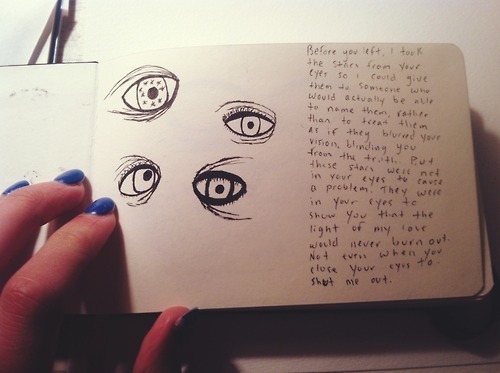 Before you left, I took
the stars from your
eyes so I could give
them to someone who
would actually be able
to name them, rather
than to treat them
as if they blurred your
vision, blinding you
from the truth. But
those stars were not
in your eyes to cause
a problem. They were
in your eyes to
show you that the
light of my love
would never burn out.
Not even when you
close your eyes to
shut me out.